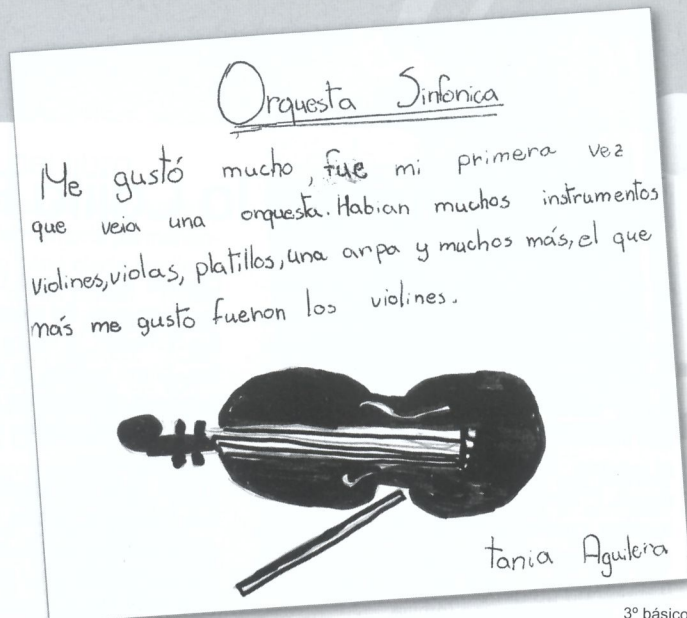 Orquesta Sinfonica
Me gustó mucho, fue mi primera vez
que veia una orquesta. Habian muchos instrumentos
violines, violas, platillos, una arpa y muchos más, el que
más me gustó fueron los violines.
tania Aguilera
3º básico